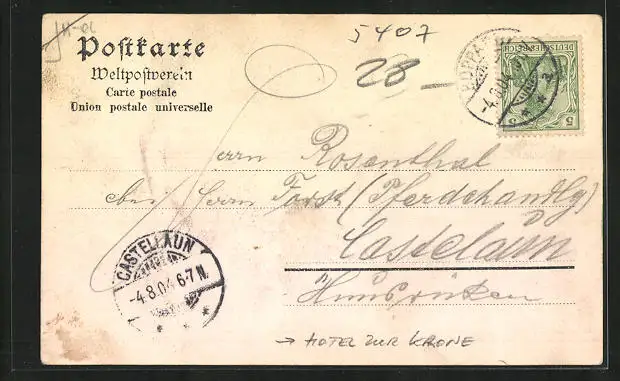 H-OL
5407
28_
Postkarte
Weltpostverein
Carte postale
Union postale universelle
DEUTSCHES REICH
5 5
BOPPARD
4.8.04
* * 2
Herrn Rosenthal
bei Herrn Forst (Pferdehandlg)
Castelaun
Hunsrücken
CASTELLAUN
-4.8.04 6-7 N.
* * *
→ HOTEL ZUR KRONE